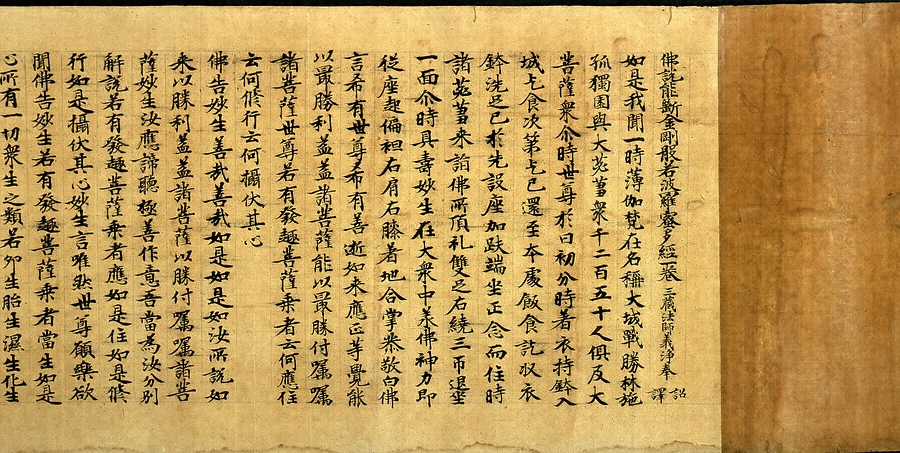 佛說能斷金剛般若波羅蜜多經一卷 三藏法師義淨奉 詔譯
如是我聞一時薄伽梵在名稱大城戰勝林施
孤獨園與大苾芻衆千二百五十人俱及大
菩薩衆尒時世尊於日初分時著衣持鉢入
城乞食次第乞已還至本處飯食訖收衣
鉢洗足已於先設座加趺端坐正念而住時
諸苾芻来詣佛所頂礼雙足右繞三帀退坐
一面尒時具壽妙生在大衆中承佛神力即
從座起偏袒右肩右膝著地合掌恭敬白佛
言希有世尊希有善逝如来應正等覺能
以最勝利益益諸菩薩能以最勝付囑囑
諸菩薩世尊若有發趣菩薩乘者云何應住
云何修行云何攝伏其心
佛告妙生善哉善哉如是如是如汝所說如
来以勝利益益諸菩薩以勝付囑囑諸菩
薩妙生汝應諦聽極善作意吾當為汝分別
解說若有發趣菩薩乘者應如是住如是修
行如是攝伏其心妙生言唯然世尊願樂欲
聞佛告妙生若有發趣菩薩乘者當生如是
心所有一切衆生之類若卵生胎生濕生化生